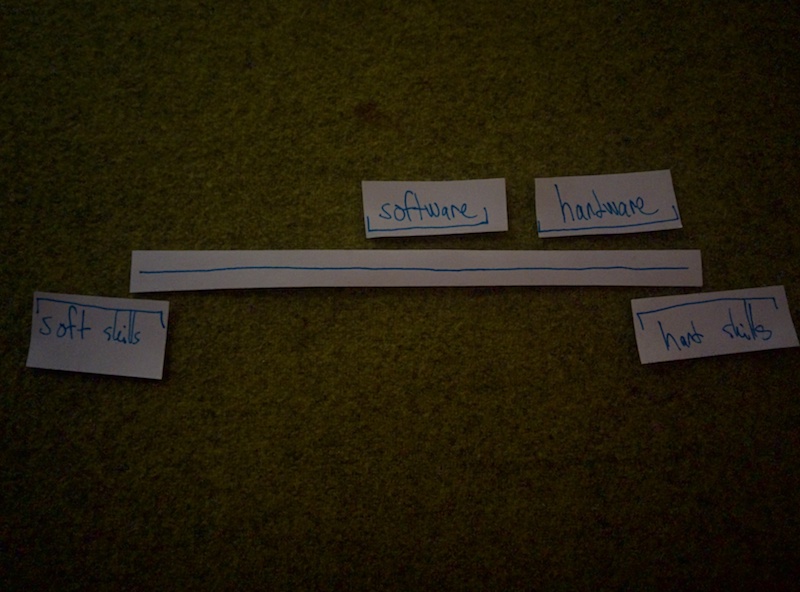 software
hardware
soft skills
hard skills